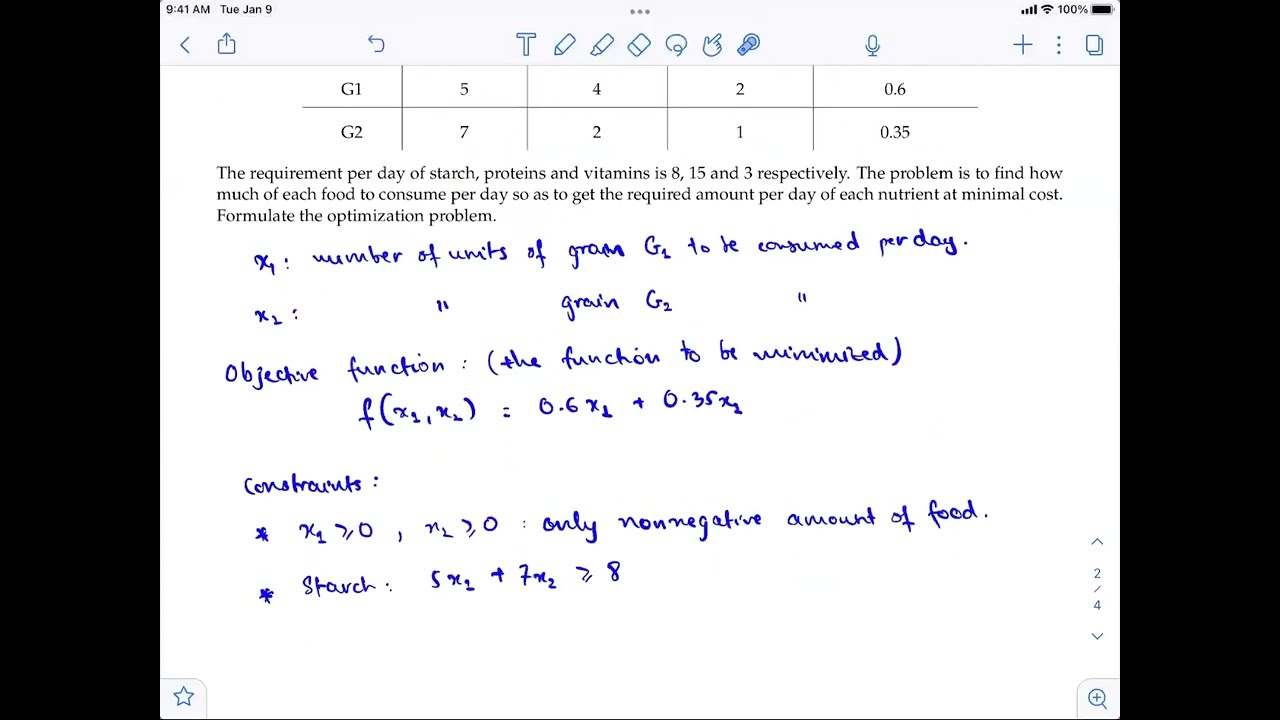 9:41 AM Tue Jan 9
100%
G1 5 4 2 0.6
G2 7 2 1 0.35
The requirement per day of starch, proteins and vitamins is 8, 15 and 3 respectively. The problem is to find how
much of each food to consume per day so as to get the required amount per day of each nutrient at minimal cost.
Formulate the optimization problem.
x₁ : number of units of grain G₁ to be consumed per day.
x₂ : " grain G₂ "
Objective function : (the function to be minimized)
f(x₁, x₂) = 0.6x₁ + 0.35x₂
Constraints :
* x₁ ⩾ 0 , x₂ ⩾ 0 : only nonnegative amount of food.
* Starch : 5x₁ + 7x₂ ⩾ 8
2
/
4